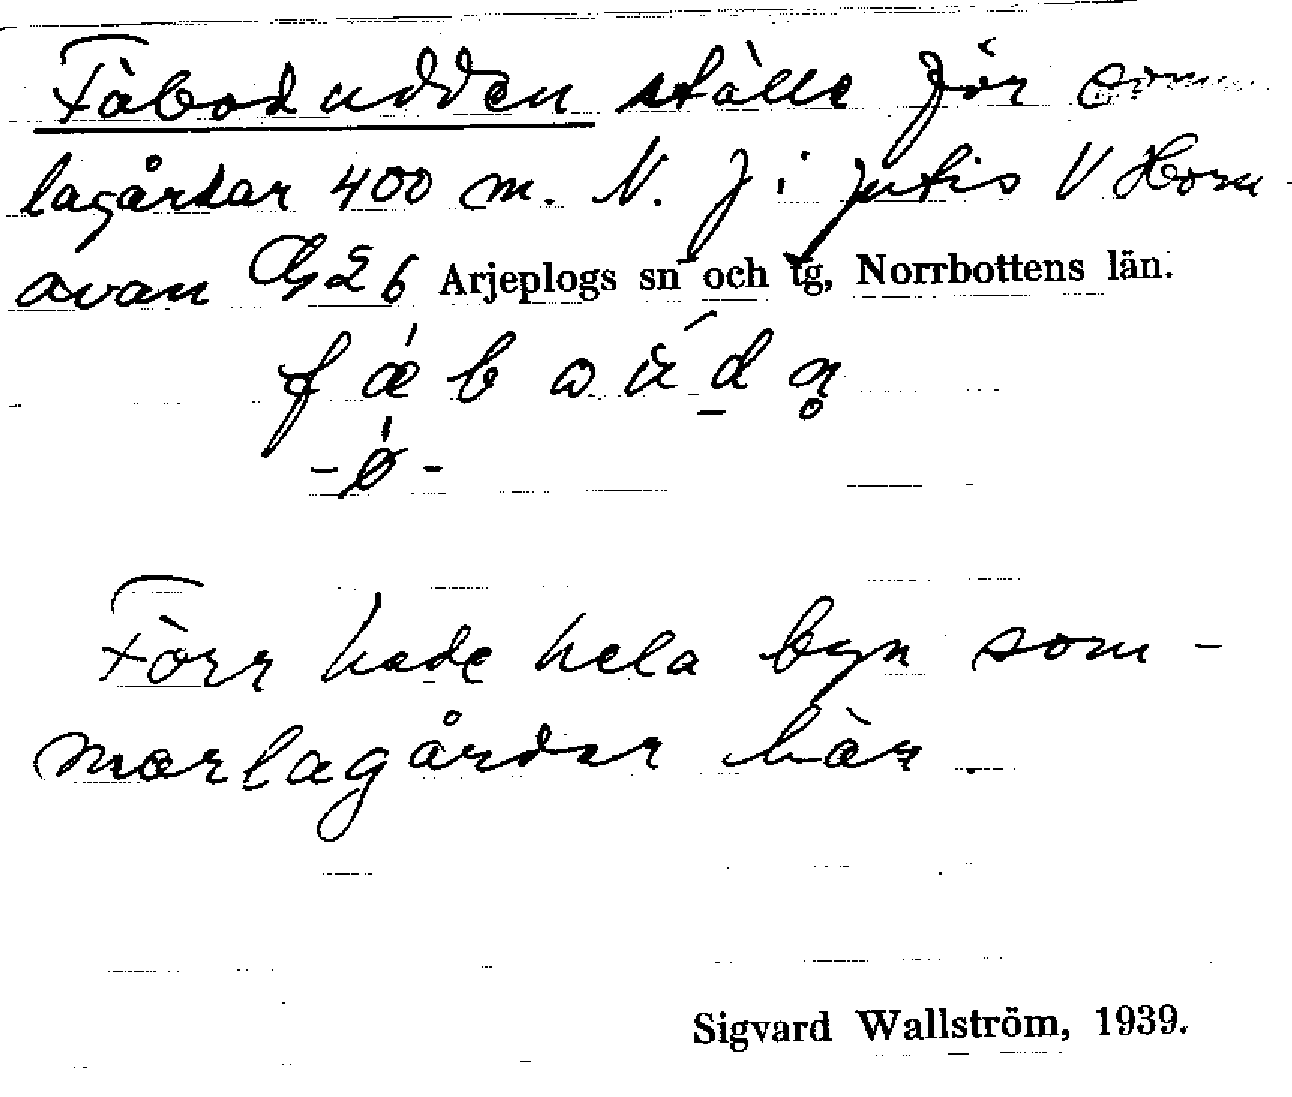 Fäbodudden ställe för som
lagårdar 400 m. N. J i Jutis V Horn
avan Arjeplogs sn och tg, Norrbottens län.
Förr hade hela byn som-
marlagårdar här
Sigvard Wallström, 1939.